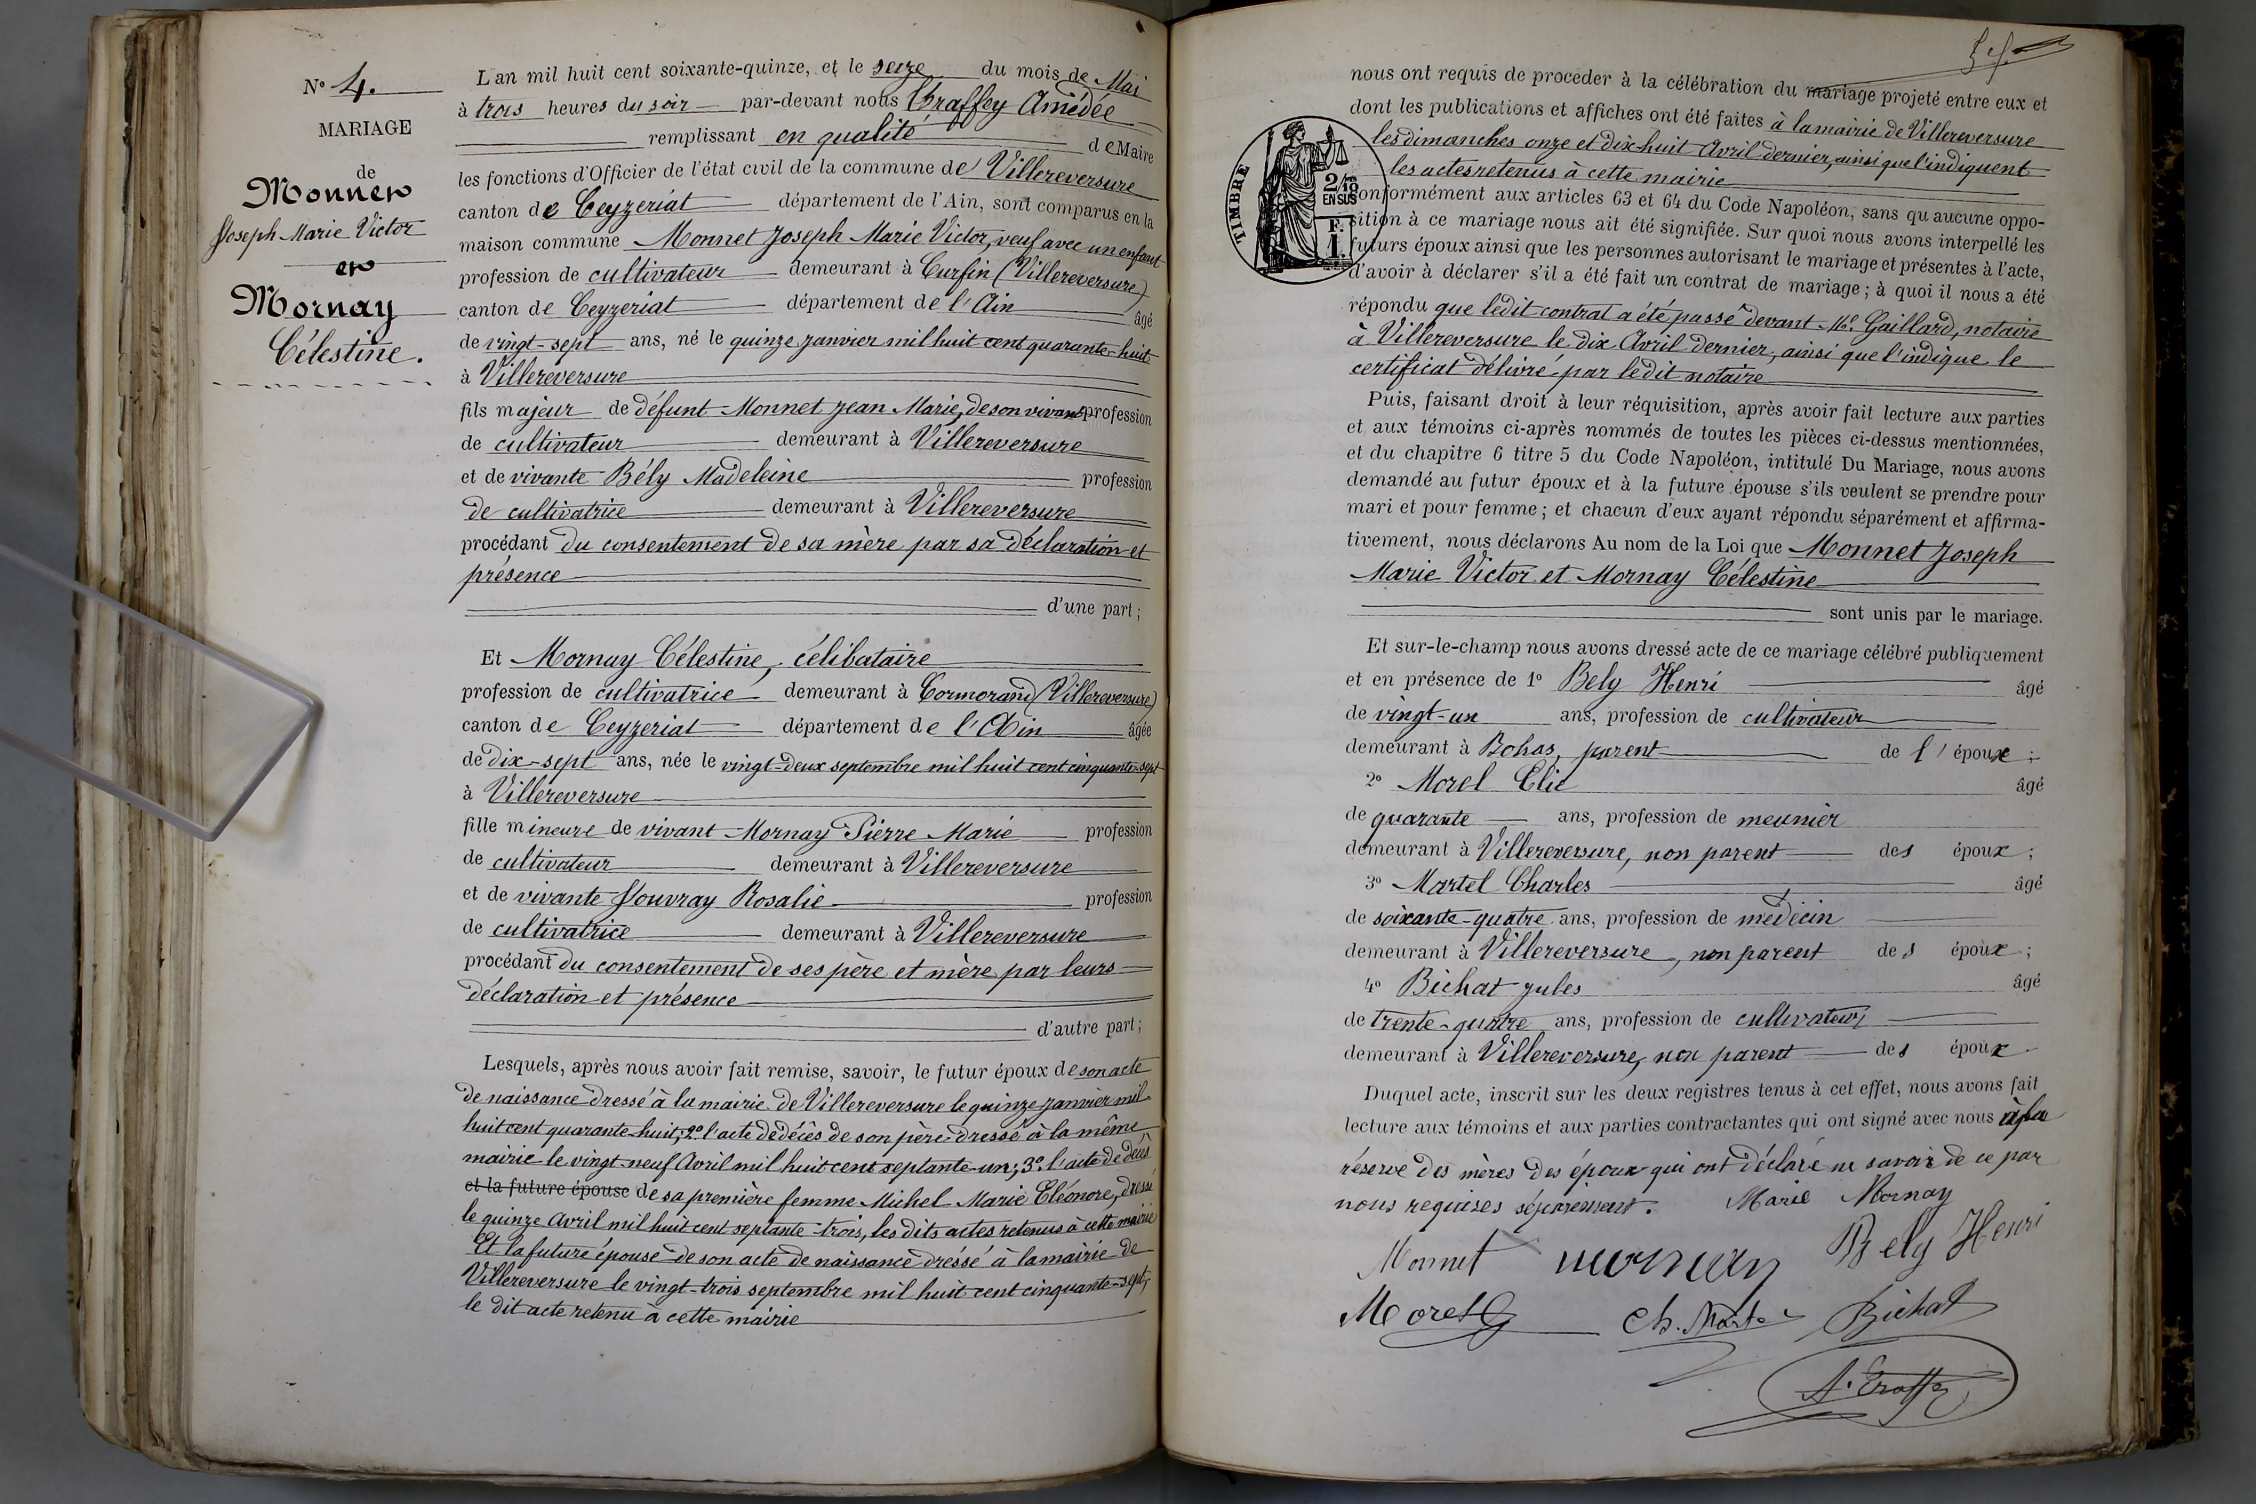 N° 4.
MARIAGE
de
Monnet
Joseph Marie Victor
et
Mornay
Célestine.
L'an mil huit cent soixante-quinze, et le seize du mois de Mai
à trois heures du soir par-devant nous Graffey Amédée
remplissant en qualité de Maire
les fonctions d'Officier de l'état civil de la commune de Villereversure
canton de Ceyzeriat département de l'Ain, sont comparus en la
maison commune Monnet Joseph Marie Victor, veuf avec un enfant
profession de cultivateur demeurant à Curfin (Villereversure)
canton de Ceyzeriat département de l'Ain âgé
de vingt-sept ans, né le quinze janvier mil huit cent quarante-huit
à Villereversure
fils majeur de défunt Monnet Jean Marie, de son vivant profession
de cultivateur demeurant à Villereversure
et de vivante Bély Madeleine profession
de cultivatrice demeurant à Villereversure
procédant du consentement de sa mère par sa déclaration et
présence
d'une part;
Et Mornay Célestine, célibataire
profession de cultivatrice demeurant à Cormorand (Villereversure)
canton de Ceyzeriat département de l'Ain âgée
de dix-sept ans, née le vingt-deux septembre mil huit cent cinquante-sept
à Villereversure
fille mineure de vivant Mornay Pierre Marie profession
de cultivateur demeurant à Villereversure
et de vivante Jouvray Rosalie profession
de cultivatrice demeurant à Villereversure
procédant du consentement de ses père et mère par leurs
déclaration et présence
d'autre part;
Lesquels, après nous avoir fait remise, savoir, le futur époux de son acte
de naissance dressé à la mairie de Villereversure le quinze janvier mil
huit cent quarante-huit; 2° l'acte de décès de son père dressé à la même
mairie le vingt-neuf Avril mil huit cent septante-un; 3° l'acte de décès
et la future épouse de sa première femme Michel Marie Eléonore, dressé
le quinze Avril mil huit cent septante-trois, les dits actes retenus à cette mairie
Et la future épouse de son acte de naissance dressé à la mairie de
Villereversure le vingt-trois septembre mil huit cent cinquante-sept,
le dit acte retenu à cette mairie
nous ont requis de procéder à la célébration du mariage projeté entre eux et
dont les publications et affiches ont été faites à la mairie de Villereversure
les dimanches onze et dix huit Avril dernier, ainsi que l'indiquent
les actes retenus à cette mairie
TIMBRE
2/10mes
EN SUS
F.
1.
conformément aux articles 63 et 64 du Code Napoléon, sans qu'aucune oppo-
sition à ce mariage nous ait été signifiée. Sur quoi nous avons interpellé les
futurs époux ainsi que les personnes autorisant le mariage et présentes à l'acte,
d'avoir à déclarer s'il a été fait un contrat de mariage; à quoi il nous a été
répondu que ledit contrat a été passé devant Me Gaillard, notaire
à Villereversure le dix Avril dernier, ainsi que l'indique le
certificat délivré par le dit notaire
Puis, faisant droit à leur réquisition, après avoir fait lecture aux parties
et aux témoins ci-après nommés de toutes les pièces ci-dessus mentionnées,
et du chapitre 6 titre 5 du Code Napoléon, intitulé Du Mariage, nous avons
demandé au futur époux et à la future épouse s'ils veulent se prendre pour
mari et pour femme; et chacun d'eux ayant répondu séparément et affirma-
tivement, nous déclarons Au nom de la Loi que Monnet Joseph
Marie Victor et Mornay Célestine
sont unis par le mariage.
Et sur-le-champ nous avons dressé acte de ce mariage célébré publiquement
et en présence de 1° Bely Henri âgé
de vingt-un ans, profession de cultivateur
demeurant à Bohas, parent de l'époux;
2° Morel Elie âgé
de quarante ans, profession de meunier
demeurant à Villereversure, non parent des époux;
3° Martel Charles âgé
de soixante-quatre ans, profession de médecin
demeurant à Villereversure, non parent des époux;
4° Bichat Jules âgé
de trente-quatre ans, profession de cultivateur
demeurant à Villereversure, non parent des époux
Duquel acte, inscrit sur les deux registres tenus à cet effet, nous avons fait
lecture aux témoins et aux parties contractantes qui ont signé avec nous à la
réserve des mères des époux qui ont déclaré ne savoir de ce par
nous requises séparément. Marie Mornay
Monnet mornay Bely Henri
Morel Ch. Martel Bichat
A. Graffey